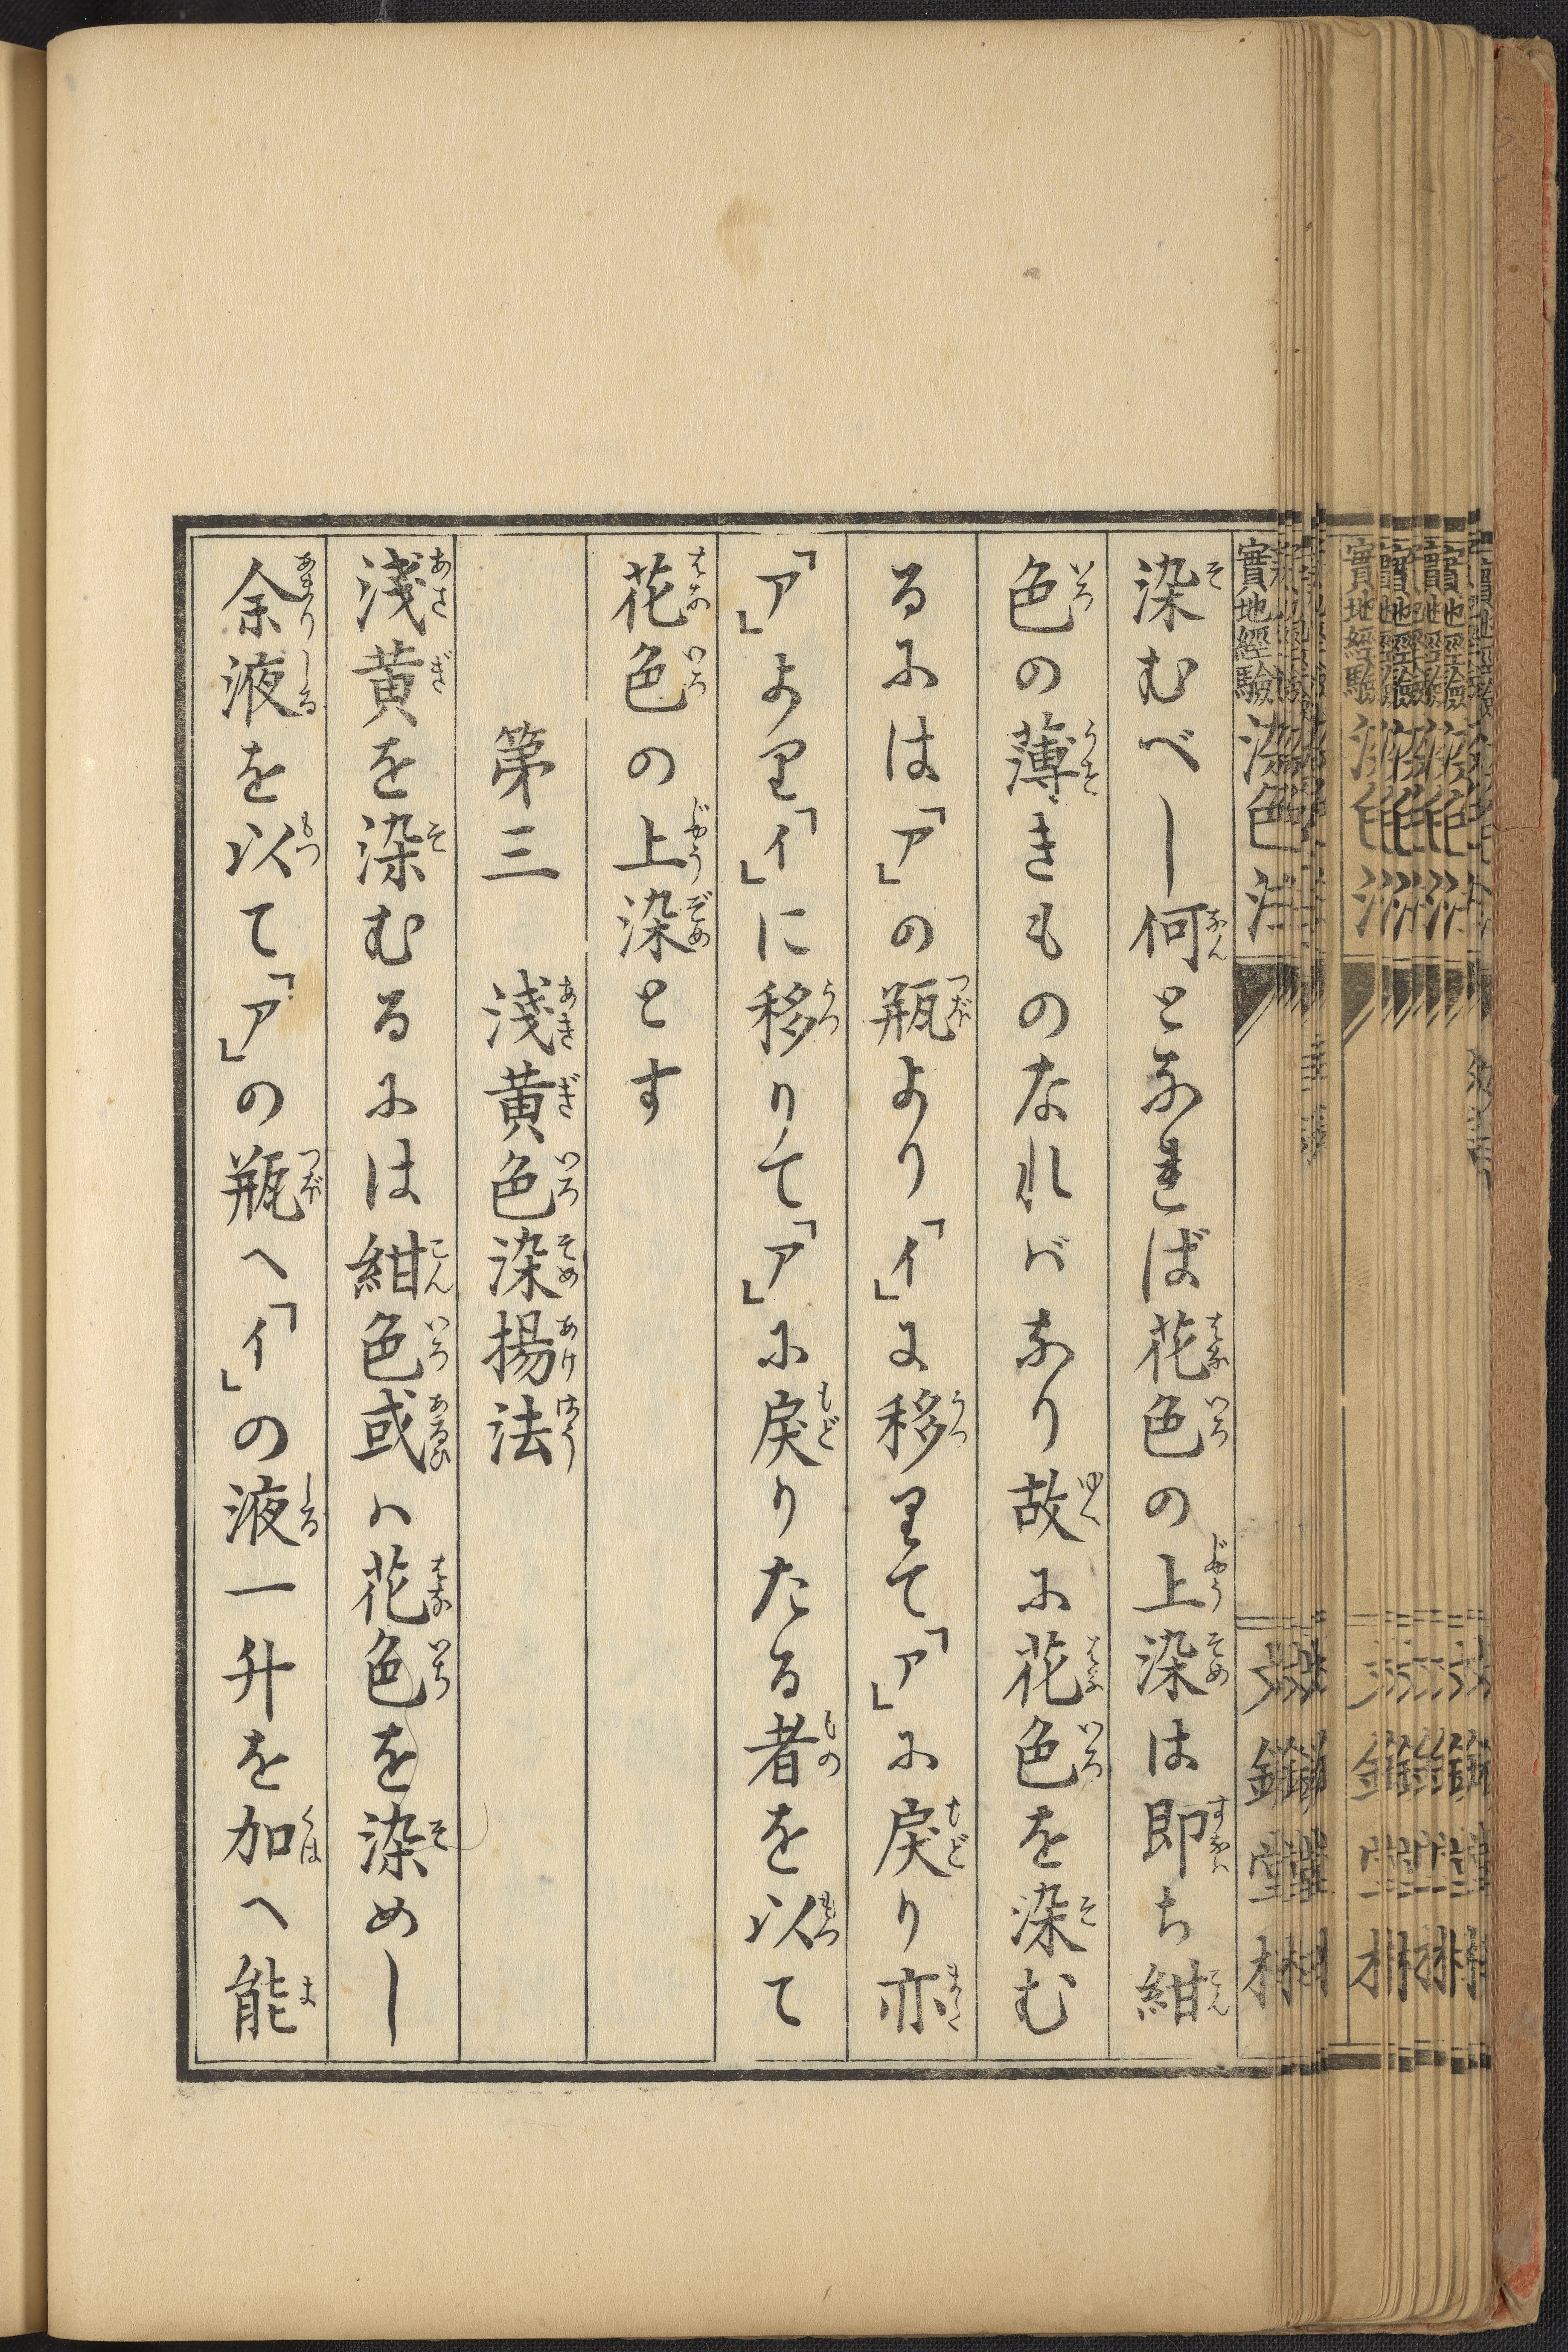 實地經驗染色法
染むべし何となれば花色の上染は即ち紺
色の薄きものなればなり故に花色を染む
るには「ア」の瓶より「イ」に移りて「ア」に戻り亦
「ア」より「イ」に移りて「ア」に戻りたる者を以て
花色の上染とす
第三 淺黄色染揚法
淺黄を染むるには紺色或ハ花色を染めし
余液を以て「ア」の瓶へ「イ」の液一升を加へ能